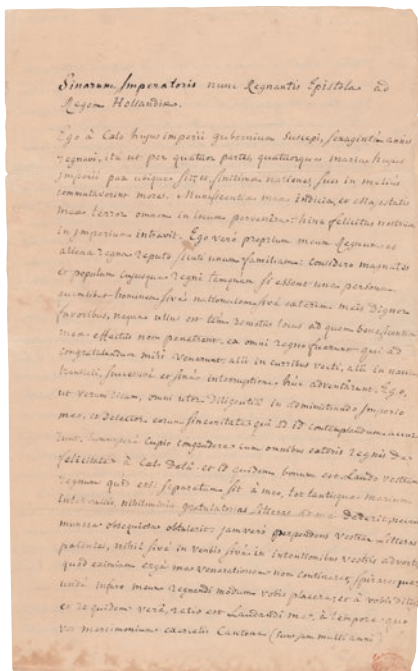 Sinarum Imperatoris nunc Regnantis Epistola ad
Regem Hollandiæ.
Ego à Cælo hujus imperii gubernium suscepi, sexaginta annis
regnavi, ità ut per quatuor partes, quatuorque maria hujus
Imperii pax ubique sit, et finitimæ nationes suos in melius
commutaverint mores. Munificentiæ meæ indicia, et Majestatis
meæ terror omnem in locum pervenere: hinc felicitas nostrum
in imperium intravit. Ego verò proprium meum Regnum et
aliena regna reputo sicuti unam familiam: considero magnates
et populum cujusque regni tanquam si essent una persona
hominum sivè nationalem sivè exterum meis dignor
favoribus, neque ullus est tàm remotus locus ad quem beneficentiæ
meæ effectus non penetret. ex omni regno fuerunt qui ad
congratulandum mihi venerunt, alii in curribus vecti, alii in navi
successivè et sinè interruptione hùc advenerunt. Ego,
ut verum dicam, omni utor diligentiâ in administrando Imperio
meo, et delector eorum sinceritate qui id contemplandum
Cupio congaudere cum omnibus exteris regnis de
felicitate à Cælo datâ: et id quidem bonum est. Laudo vestrum
regnum quod etsi separatum sit à meo, tot tantisque marium
intervallis, nihilominùs gratulatorias litteras ad me dederit, necnon
munera obsequiosè obtulerit: jam verò perpendens vestras litteras
patentes, nihil sivè in verbis sivè in intentionibus vestris adverto
quod eximiam ergà me venerationem non contineret,
undè infero meum regnandi modum vobis placere, et à vobis
et de quidem verà, ratio est Laudandi me, à tempore quo
vos mercimonium exercetis Cantone (sunt jam multi anni)